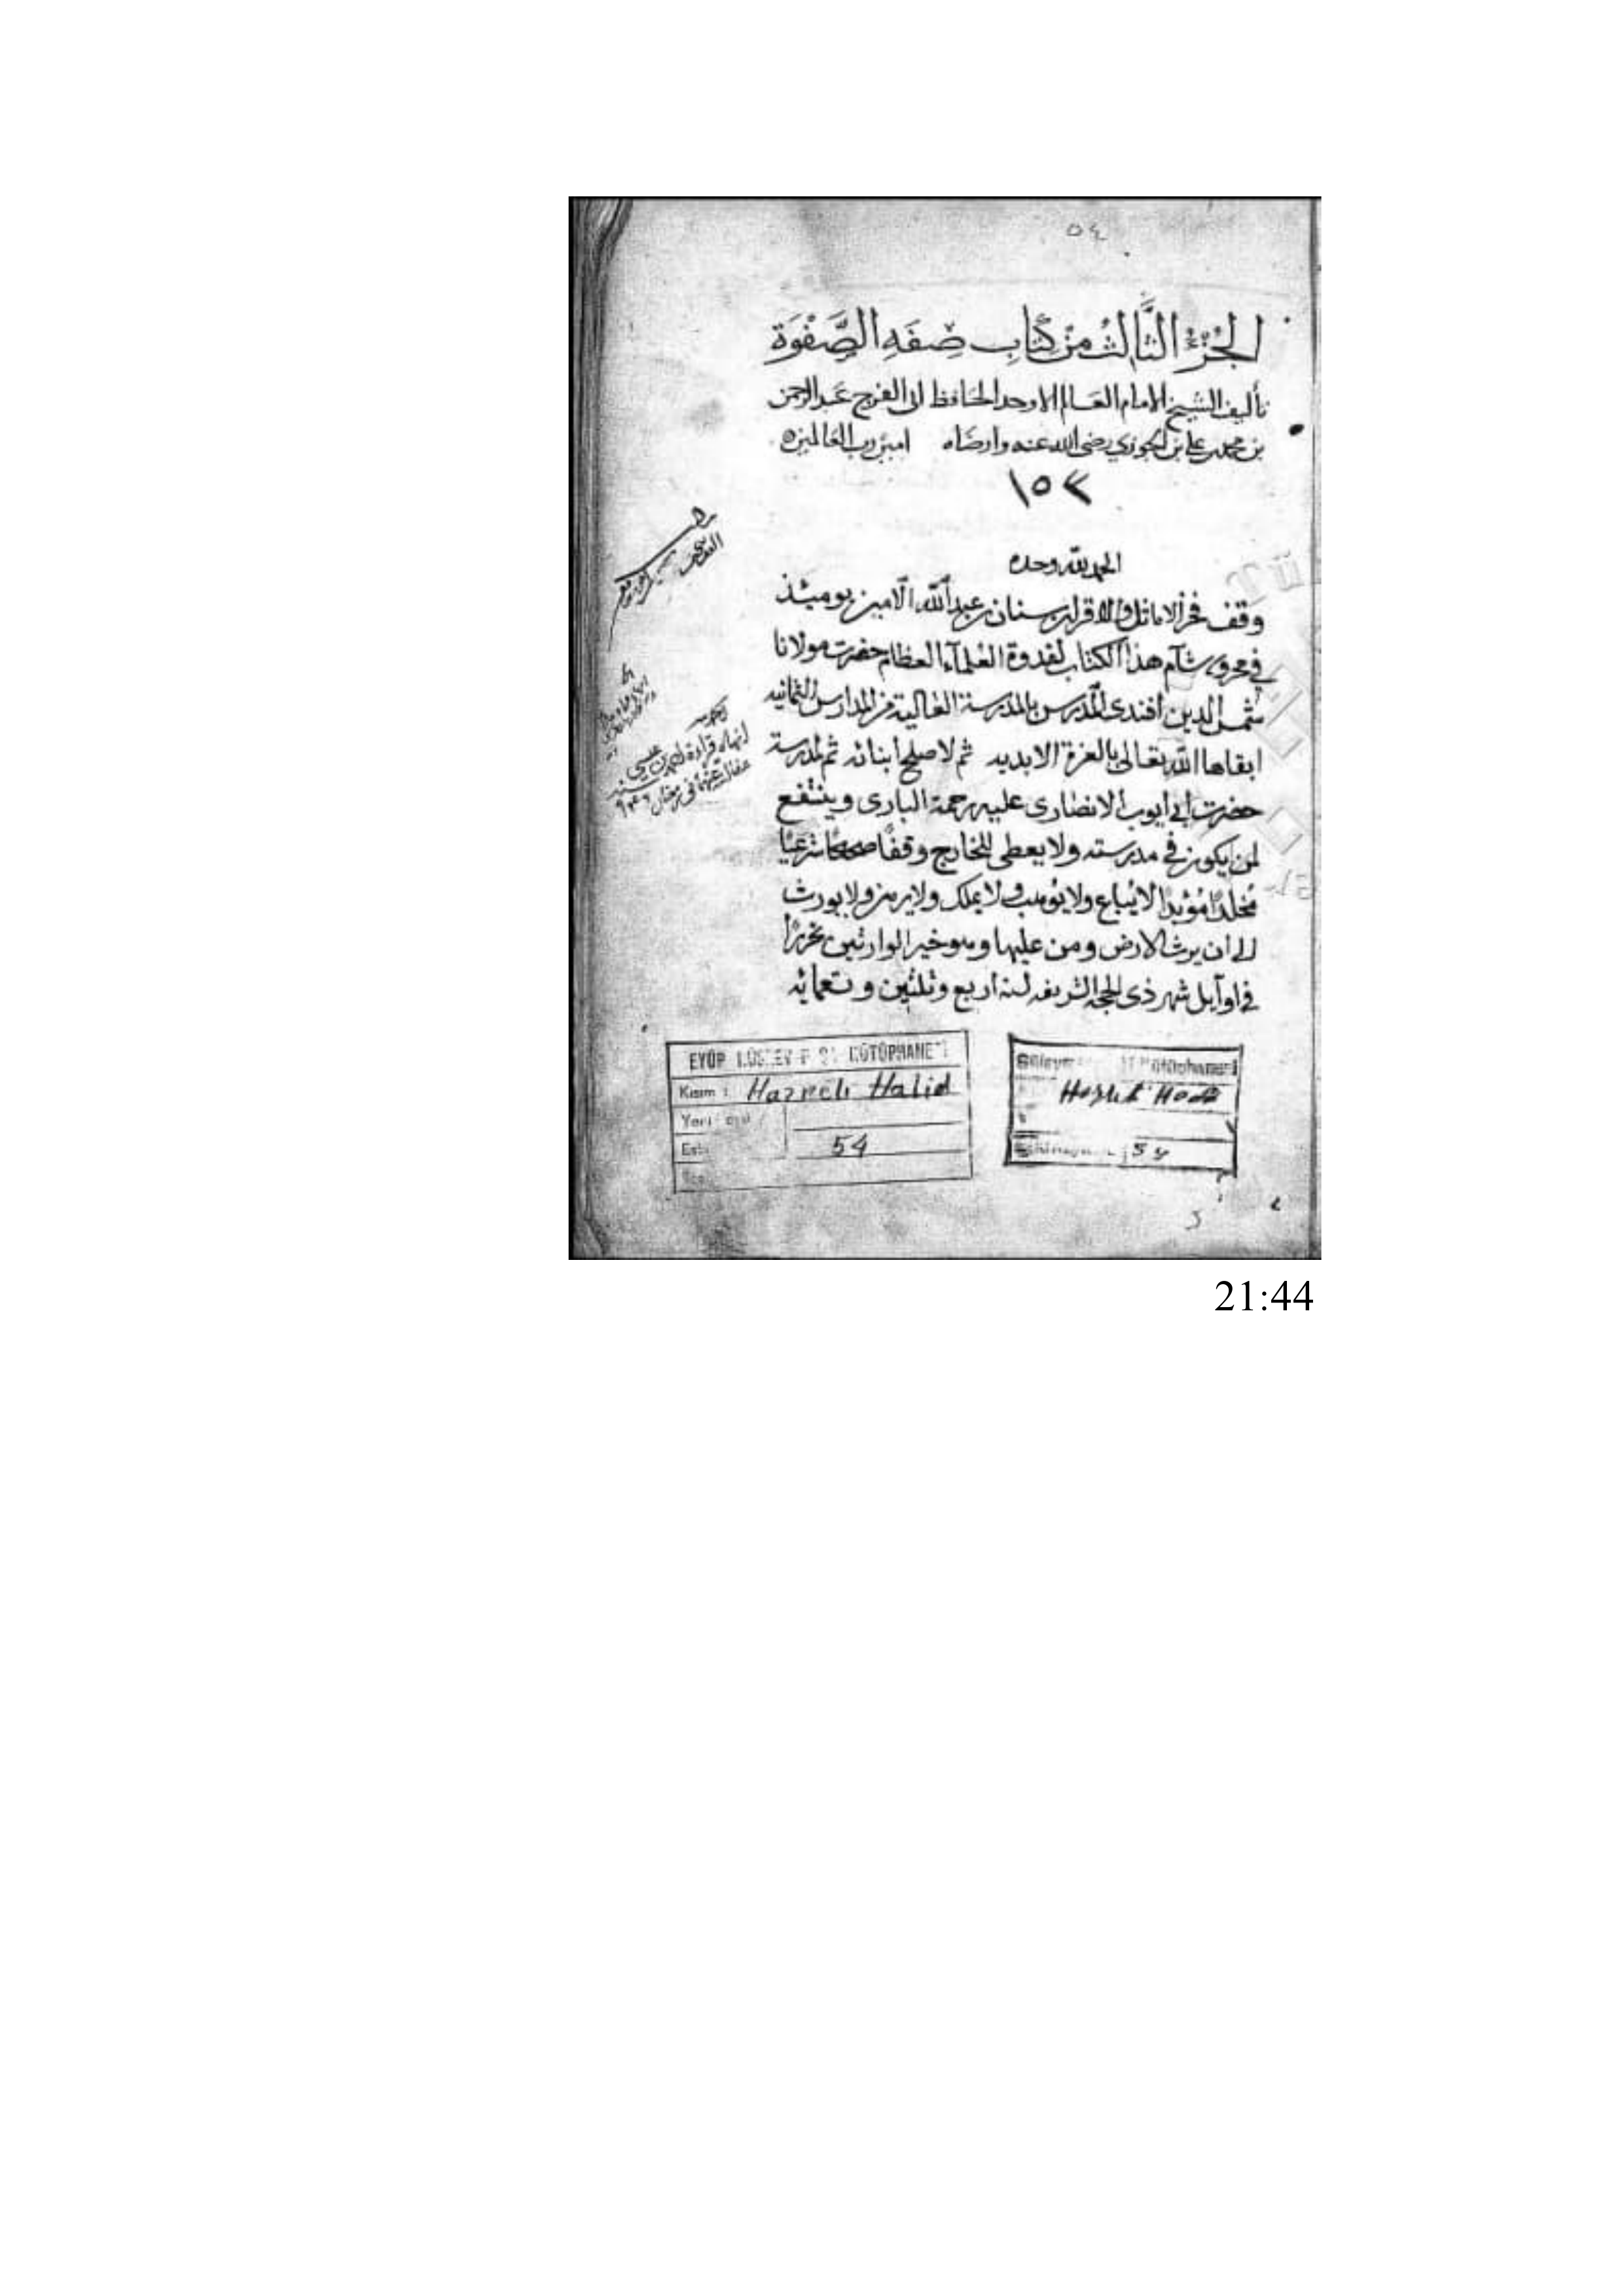 ٥٤
الجُزْءُ الثَّالِثُ مِنْ كِتَابِ صِفَةِ الصَّفْوَة
تأليف الشيخ الامام العالم الاوحد الحافظ ابى الفرج عبد الرحمن
بن محمد بن على بن الجوزي رضى الله عنه وارضاه امين رب العالمين
١٥٣
الحمد لله وحده
وقف فخر الاماثل والاقران سنان بن عبد الله الامين يوميئذ
في محروس شام هذا الكتاب لقدوة العلماء العظام حضرت مولانا
شمس الدين افندى المدرس بالمدرسة العالية من المدارس الثمانيه
ابقاها الله تعالى بالعزة الابديه ثم لاصلح ابنائه ثم لمدرسة
حضرت ابى ايوب الانصارى عليه رحمة البارى وينتفع
لمن يكون في مدرسته ولا يعطى للخارج وقفًا صحيحًا شرعيًا
مخلدًا مؤبدًا لا يباع ولا يوهب ولا يملك ولا يرهن ولا يورث
الى ان يرث الارض ومن عليها وهو خير الوارثين تحريرًا
في اوايل شهر ذى الحجة الشريفه لسنة اربع وثلثين وتسعمائه
الحمد لله
انهاه قراءة احمد بن عيسى
فى رمضان
EYÜP KÜTÜPHANESİ
Kısım : Hazreti Halid
Yeni
54
Kütüphanesi
54
21:44